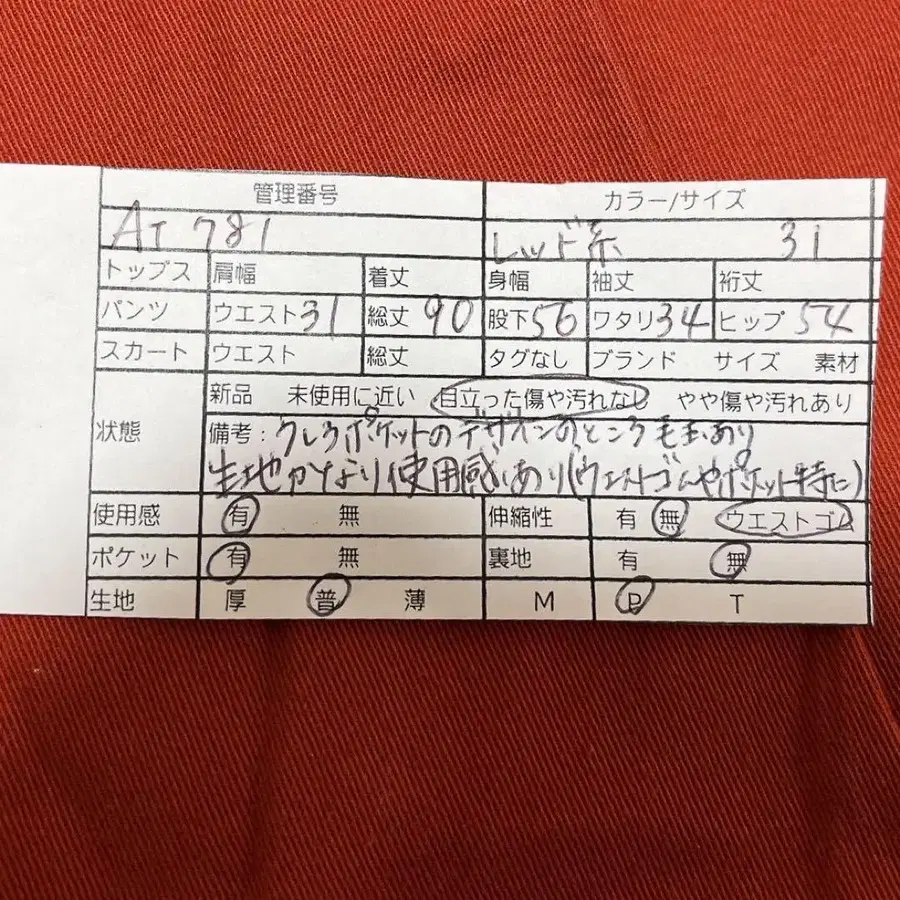 管理番号 カラー/サイズ
AT 781 レッド系 31
トップス 肩幅 着丈 身幅 袖丈 裄丈
パンツ ウエスト31 総丈 90 股下56 ワタリ34 ヒップ 54
スカート ウエスト 総丈 タグなし ブランド サイズ 素材
状態 新品 未使用に近い 目立った傷や汚れなし やや傷や汚れあり
備考:うしろポケットのデザインのところ毛玉あり
生地かなり使用感あり(ウエストゴムやポケット特に)
使用感 有 無 伸縮性 有 無 ウエストゴム
ポケット 有 無 裏地 有 無
生地 厚 普 薄 M P T